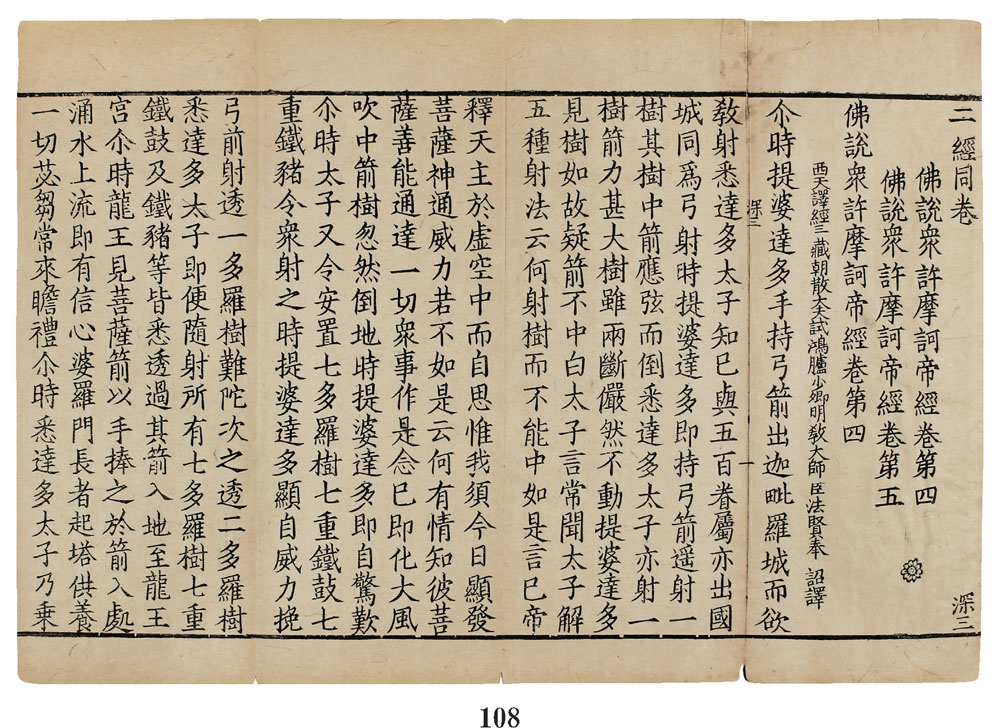 二經同卷　深三
佛說衆許摩訶帝經卷第四
佛說衆許摩訶帝經卷第五
佛說衆許摩訶帝經卷第四
西天譯經三藏朝散大夫試鴻臚少卿明教大師臣法賢奉　詔譯
尒時提婆達多手持弓箭出迦毗羅城而欲
深三　一
敎射悉達多太子知已與五百眷屬亦出國
城同爲弓射時提婆達多即持弓箭遥射一
樹其樹中箭應弦而倒悉達多太子亦射一
樹箭力甚大樹雖兩斷儼然不動提婆達多
見樹如故疑箭不中白太子言常聞太子解
五種射法云何射樹而不能中如是言已帝
釋天主於虚空中而自思惟我須今日顯發
菩薩神通威力若不如是云何有情知彼菩
薩善能通達一切衆事作是念已即化大風
吹中箭樹忽然倒地時提婆達多即自驚歎
尒時太子又令安置七多羅樹七重鐵鼓七
重鐵豬令衆射之時提婆達多顯自威力挽
弓前射透一多羅樹難陀次之透二多羅樹
悉達多太子即便隨射所有七多羅樹七重
鐵鼓及鐵豬等皆悉透過其箭入地至龍王
宫尒時龍王見菩薩箭以手捧之於箭入處
涌水上流即有信心婆羅門長者起塔供養
一切苾芻常來瞻禮尒時悉達多太子乃乗
108